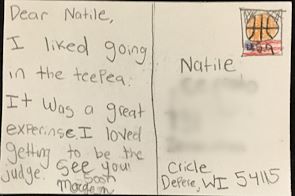 Dear Natile,
I liked going
in the teepea.
It was a great
experinse I loved
getting to be the
judge. See you
soon
Natile
Cricle
Depere, WI 54115